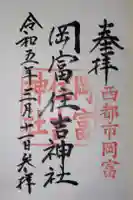 奉拝
西都市岡富
岡富住吉神社
岡富
神社
令和五年二月十一日参拝